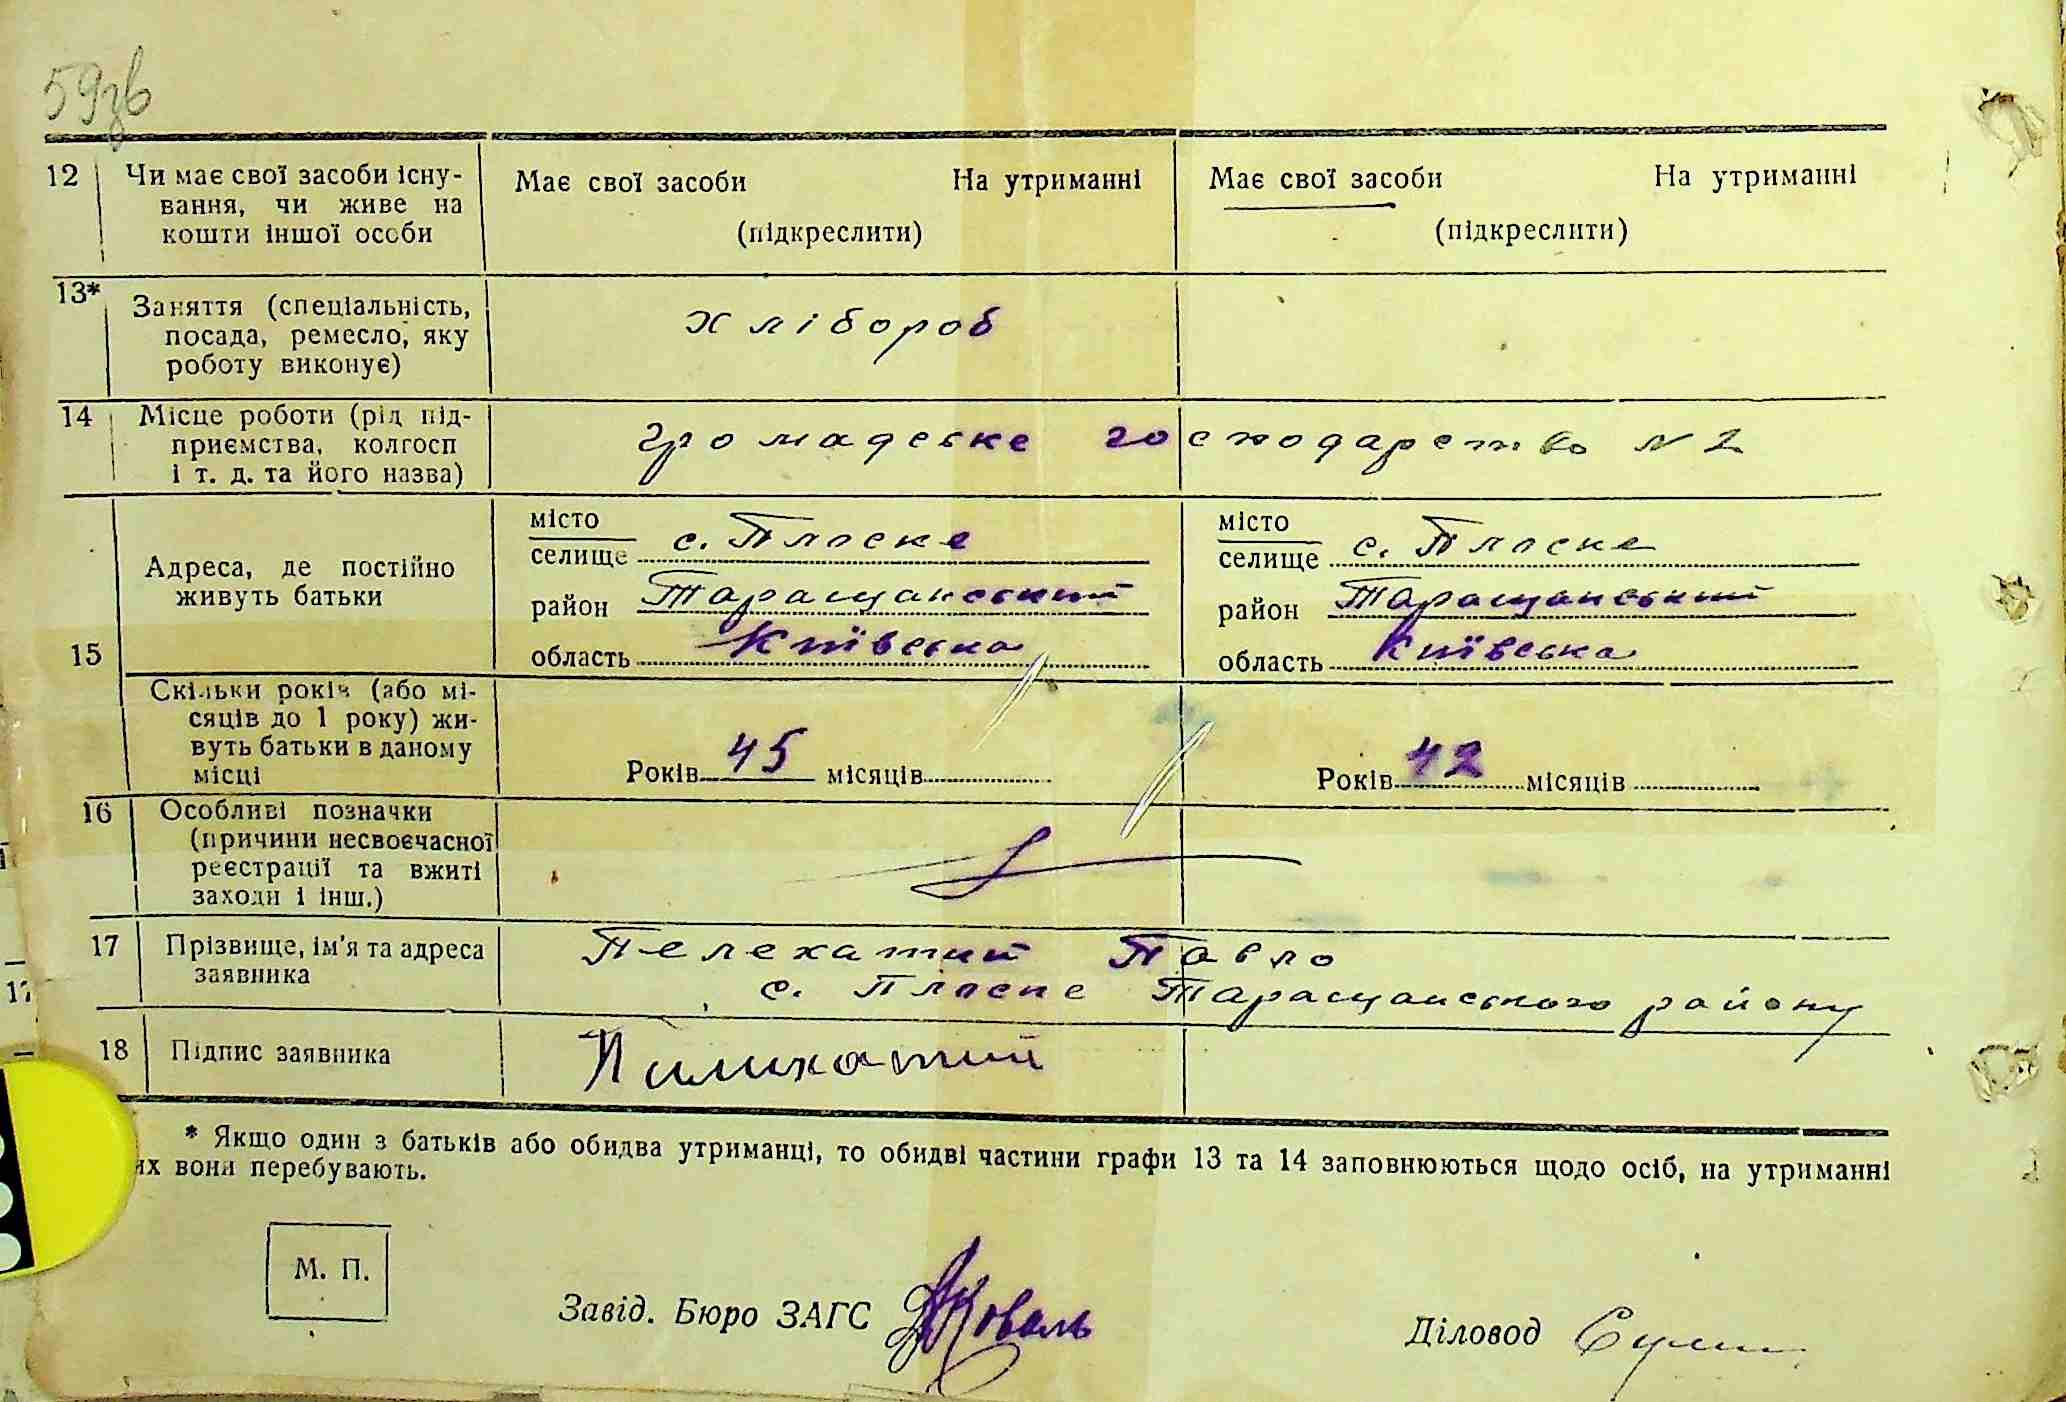 59зв
12 Чи має свої засоби існу-
вання, чи живе на
кошти іншої особи
Має свої засоби На утриманні
(підкреслити)
Має свої засоби На утриманні
(підкреслити)
13* Заняття (спеціальність,
посада, ремесло, яку
роботу виконує)
хлібороб
14 Місце роботи (рід під-
приємства, колгосп
і т. д. та його назва)
громадське господарство N 2
15 Адреса, де постійно
живуть батьки
місто
селище с. Плоске
район Таращанський
область Київська
місто
селище с. Плоске
район Таращанський
область Київська
Скільки років (або мі-
сяців до 1 року) жи-
вуть батьки в даному
місці
Років 45 місяців
Років 42 місяців
16 Особливі позначки
(причини несвоєчасної
реєстрації та вжиті
заходи і інш.)
17 Прізвище, ім'я та адреса
заявника
Пелехатий Павло
с. Плоске Таращанського району
18 Підпис заявника
Пилихатий
* Якщо один з батьків або обидва утриманці, то обидві частини графи 13 та 14 заповнюються щодо осіб, на утриманні
их вони перебувають.
М. П.
Завід. Бюро ЗАГС Коваль
Діловод
17